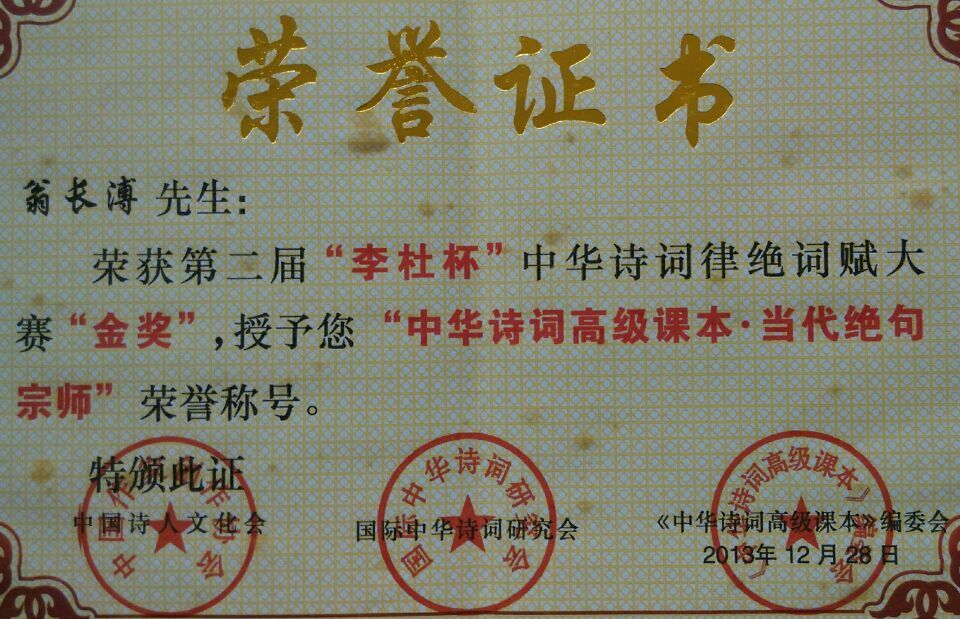 荣誉证书
翁长溥 先生:
荣获第二届“李杜杯”中华诗词律绝词赋大
赛“金奖”,授予您“中华诗词高级课本·当代绝句
宗师”荣誉称号。
特颁此证
中国诗人文化会
国际中华诗词研究会
《中华诗词高级课本》编委会
2013年 12 月 28 日
国际中华诗词研究会
《中华诗词高级课本》编委会